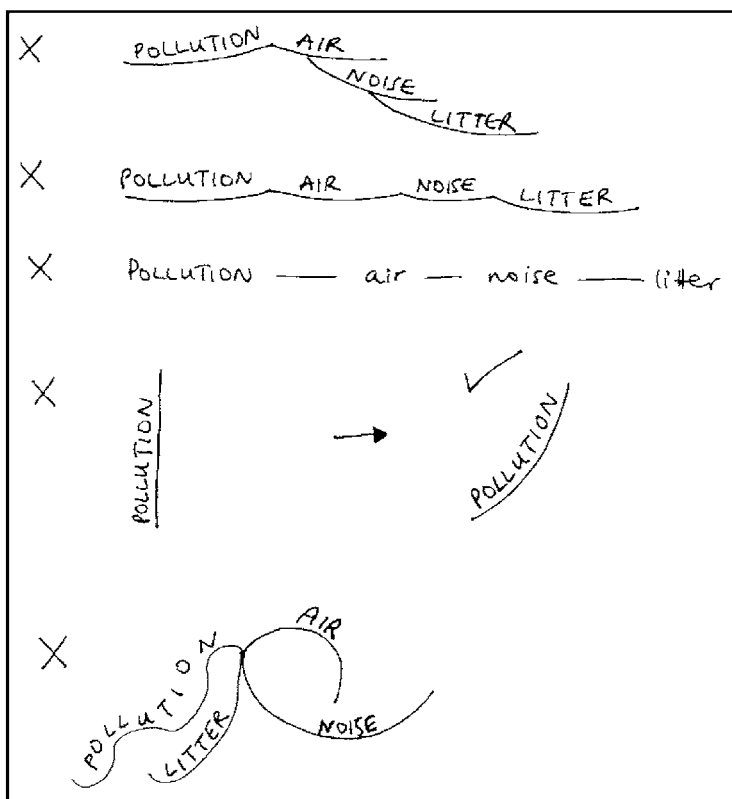 POLLUTION AIR
NOISE
LITTER
POLLUTION AIR NOISE LITTER
POLLUTION air noise litter
POLLUTION
POLLUTION
AIR
POLLUTION
LITTER
NOISE